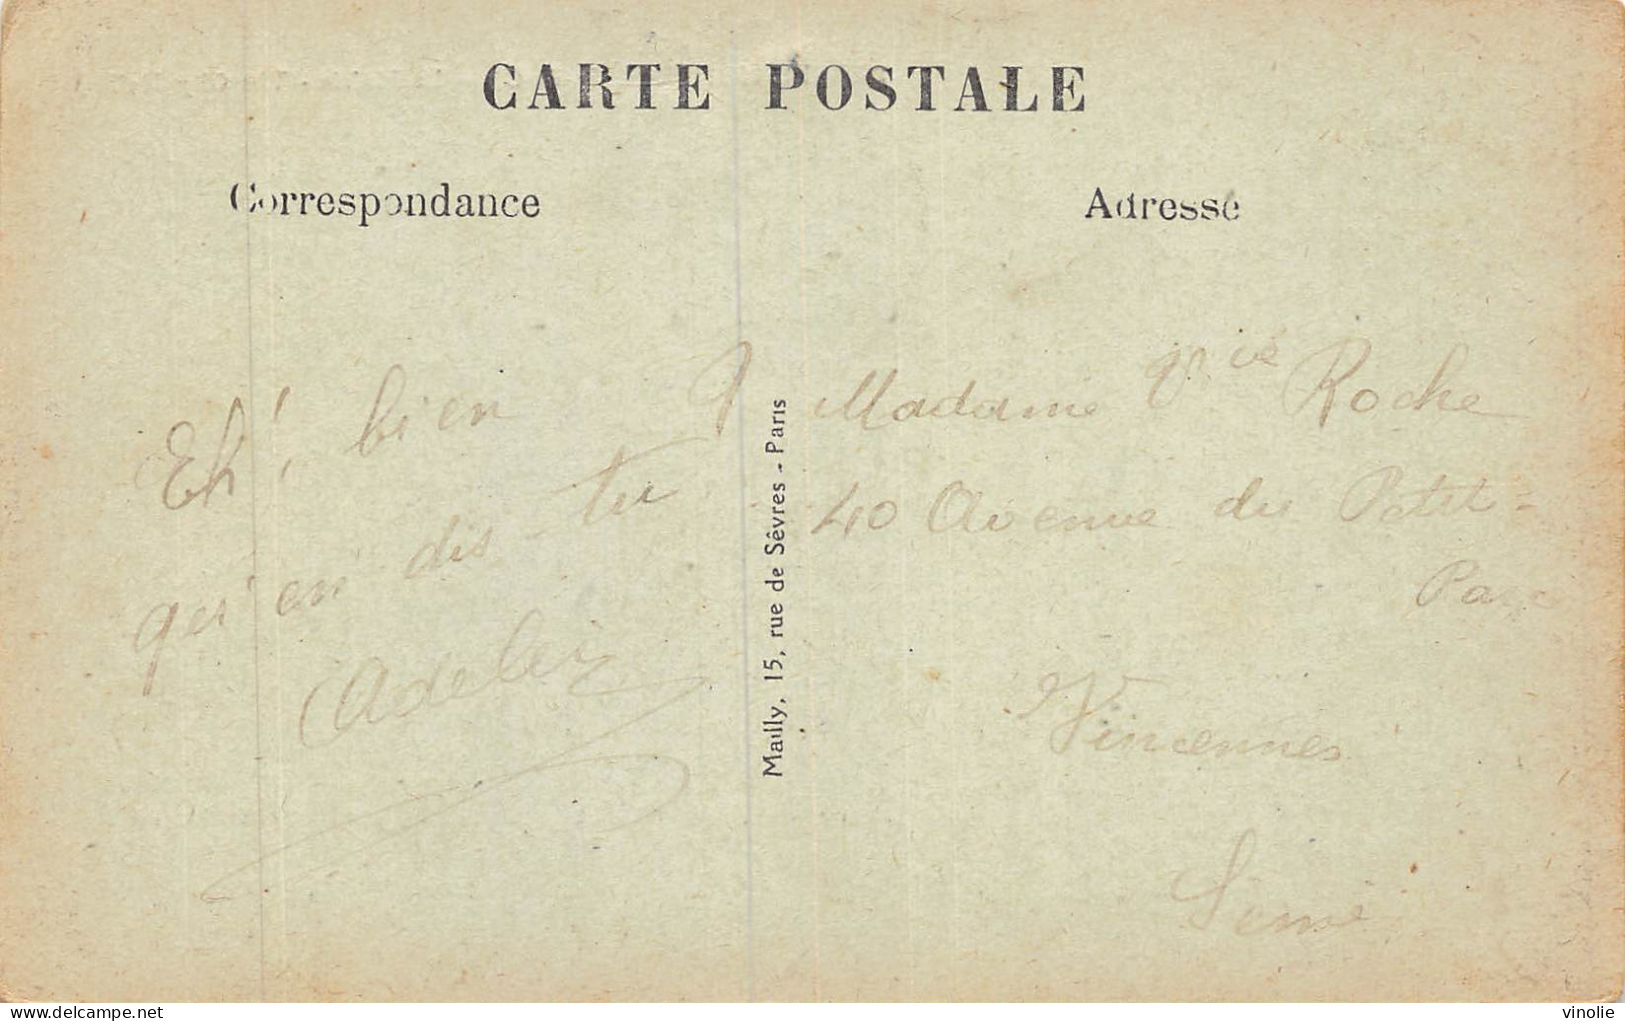 CARTE POSTALE
Correspondance
Eh! bien
qu'en dis-tu
Mailly, 15, rue de Sèvres - Paris
Adresse
Madame Roche
40 Avenue du Petit-
Parc
Vincennes
Seine
delcampe.net
vinolie